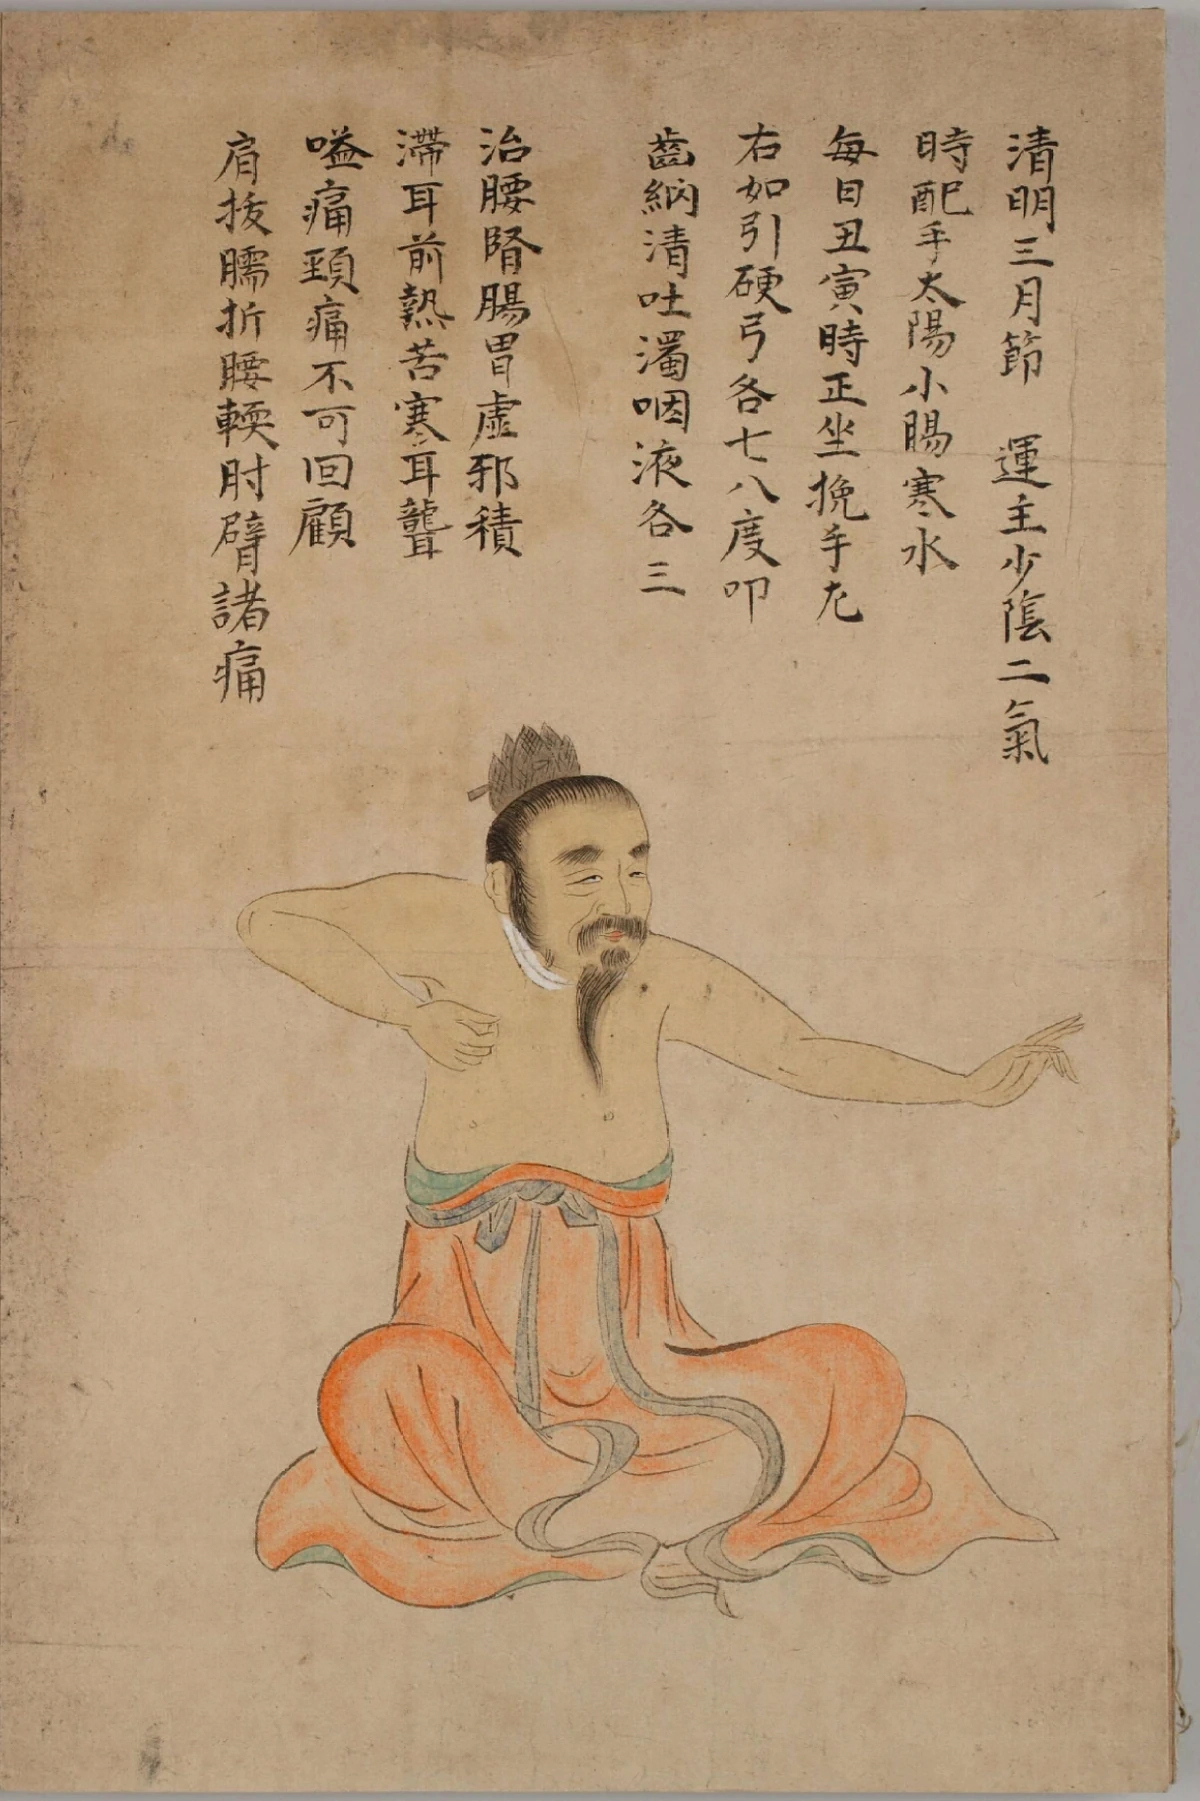 清明三月節 運主少陰二氣
時配手太陽小腸寒水
每日丑寅時正坐挽手左
右如引硬弓各七八度叩
齒納清吐濁咽液各三
治腰腎腸胃虛邪積
滯耳前熱苦寒耳聾
嗌痛頸痛不可回顧
肩拔臑折腰輭肘臂諸痛